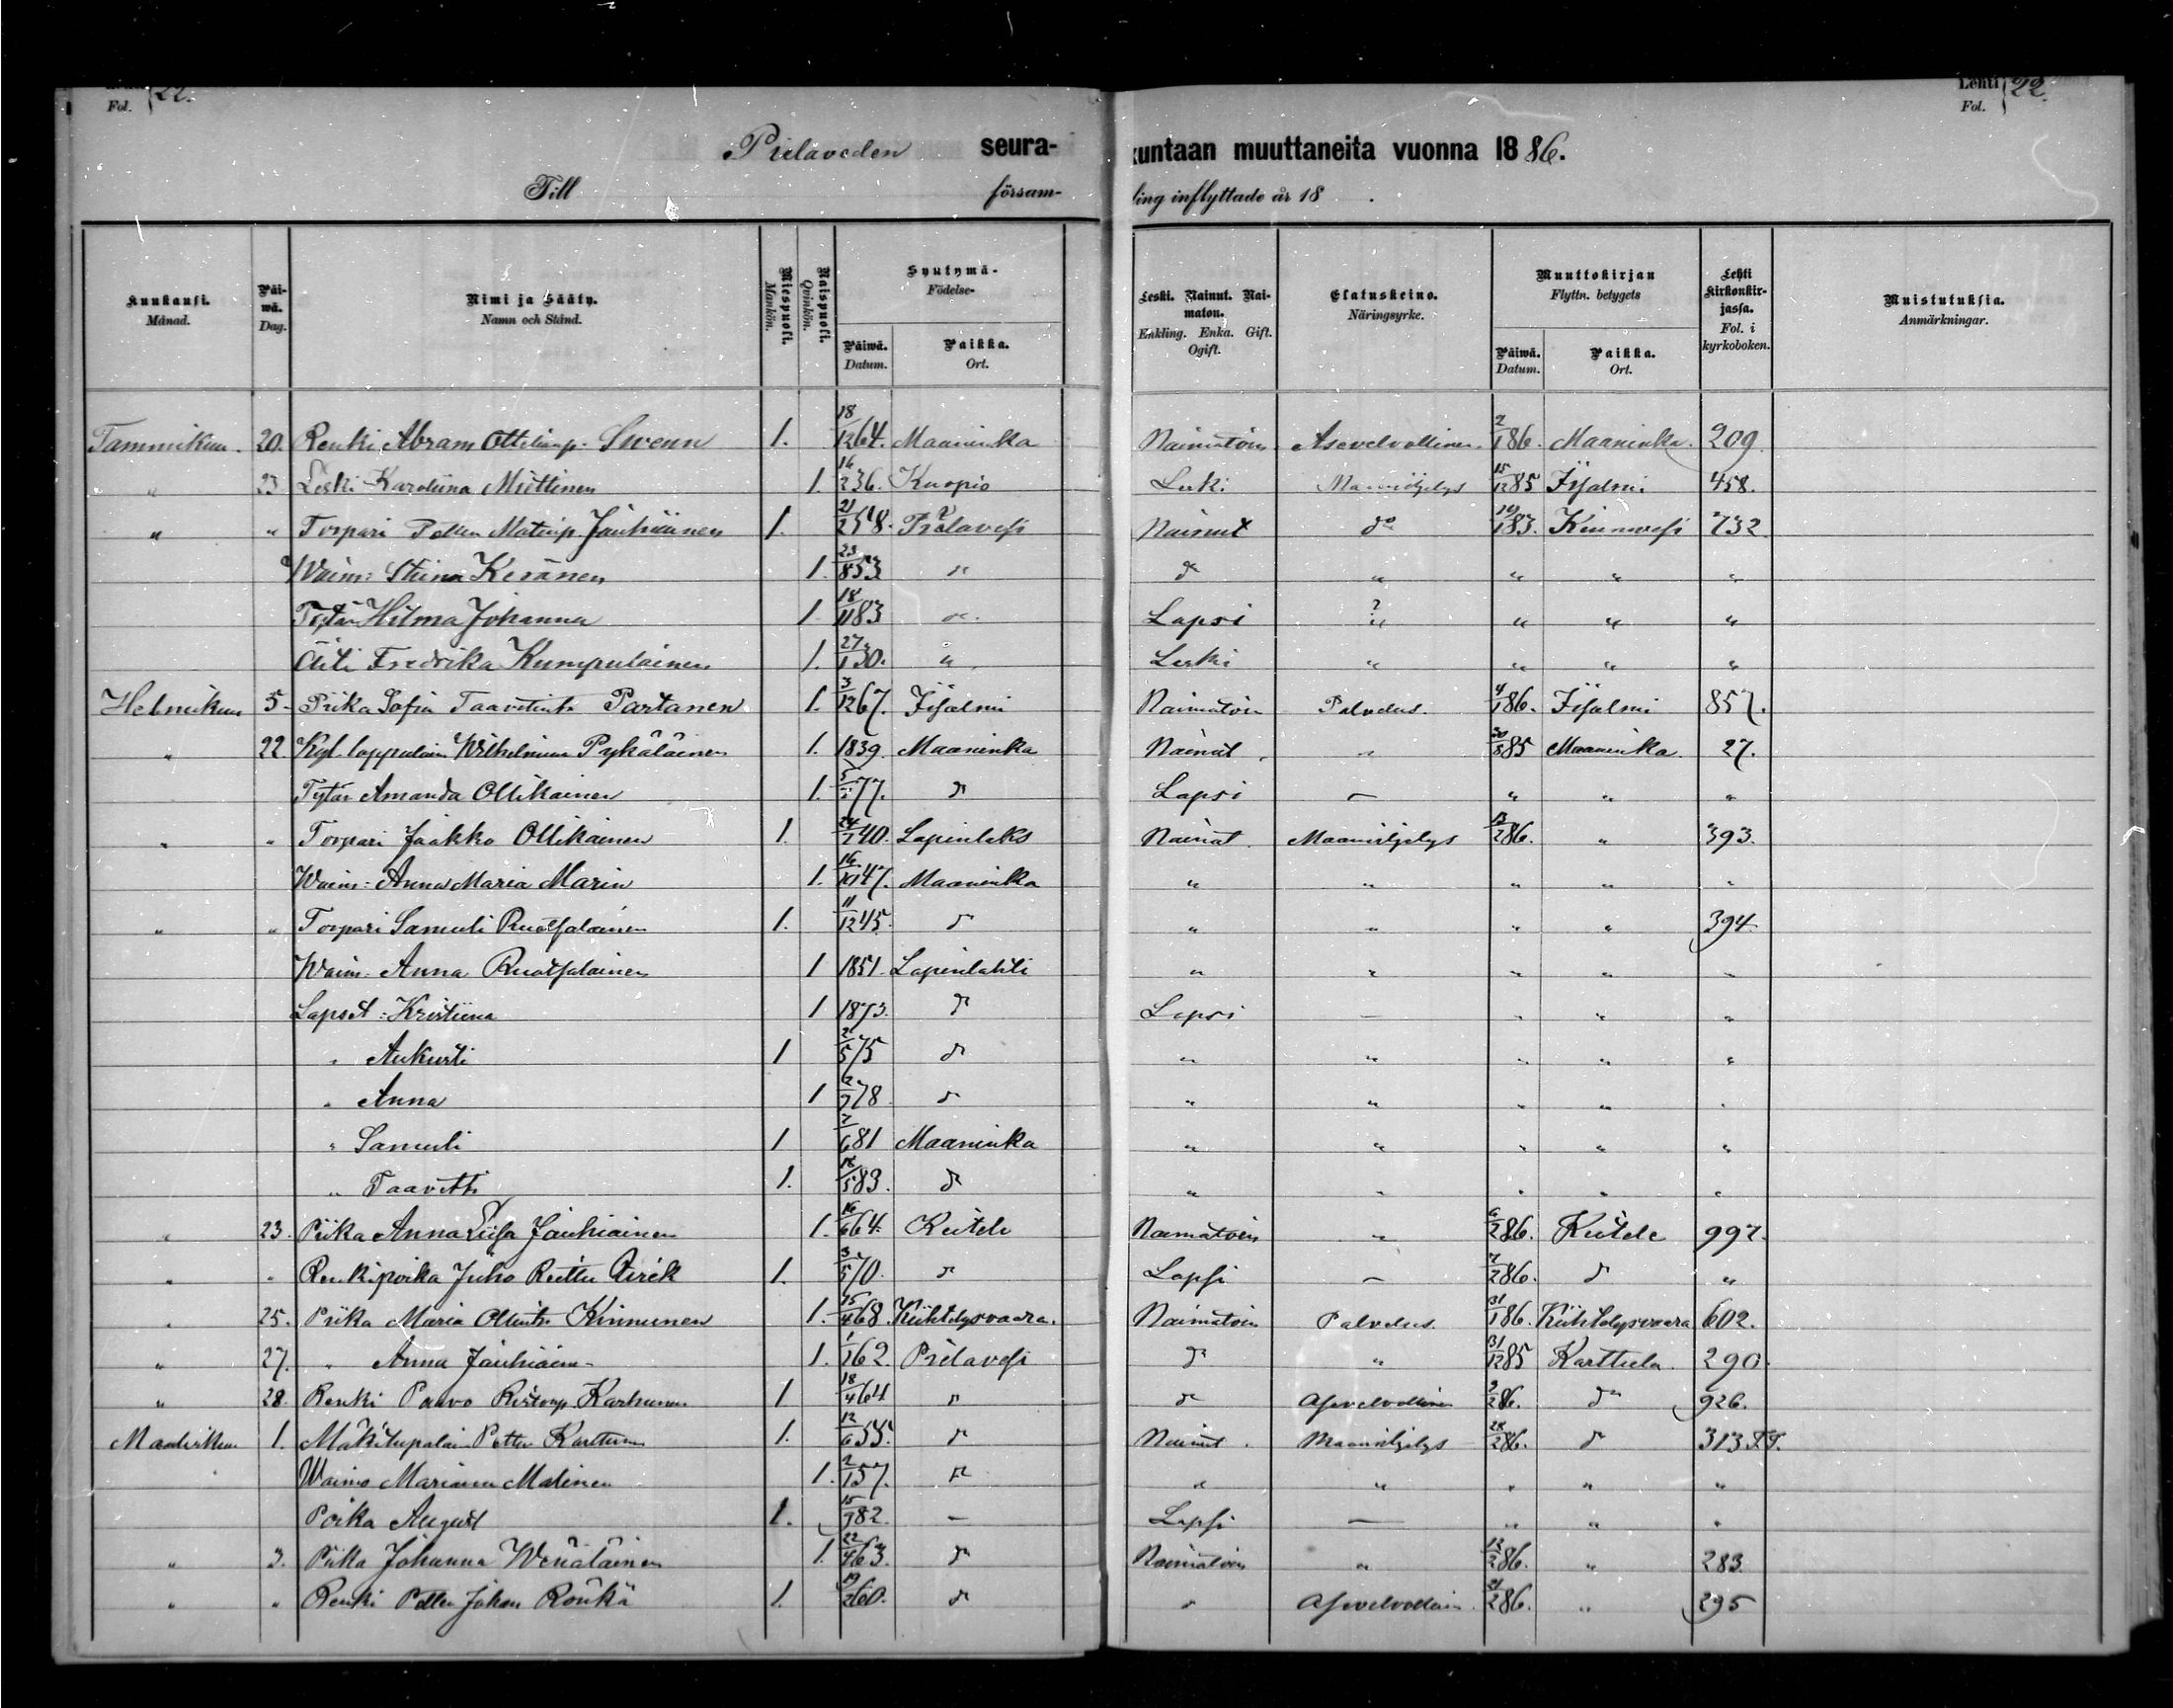 Fol. 22.
Lehti 22.
Fol.
Pielaveden seura-kuntaan muuttaneita vuonna 1886.
Till försam-ling inflyttade år 18 .
Kuukausi. Månad. Päi-wä. Dag. Nimi ja Sääty. Namn och Stånd. Miespuoli. Mankön. Naispuoli. Qvinkön. Syntymä- Födelse- Päiwä. Datum. Paikka. Ort. Leski. Nainut. Nai-maton. Enkling. Enka. Gift. Ogift. Elatuskeino. Näringsyrke. Muuttokirjan Flyttn. betygets Päiwä. Datum. Paikka. Ort. Lehti Kirkonkir-jassa. Fol. i kyrkoboken. Muistutuksia. Anmärkningar.
Tammikuu. 20. Renki Abram Swenn 1. 18/12 64. Maaninka Naimatoin Asevelvollinen 2/1 86. Maaninka. 209
" 23. Leski Karoliina Miettinen 1. 16/2 36. Kuopio Leski Maanviljelys 15/12 85 Iisalmi 458.
" " Torpari Petter Matinp. Jauhiainen 1. 21/2 58. Pielavesi Nainut do 19/1 83. Kiuruvesi 732
Waim: Stiina Keränen 1. 23/8 53 " d " " " "
Tytär Hilma Johanna 1 18/11 83 " Lapsi ? " " " "
Äiti Fredrika Kumpulainen 1. 27/1 30. " Leski " " " "
Helmikuu 5. Piika Sofia Taavetint. Partanen 1. 3/12 67. Iisalmi Naimatoin Palvelus. 4/1 86. Iisalmi 857.
" 22. Wilhelmiina Pykäläinen 1. 1839. Maaninka Nainut " 30/8 85 Maaninka. 27.
Tytär Amanda Ollikainen 1. 77. d Lapsi — " " "
" " Torpari Jaakko Ollikainen 1. 24/2 40. Lapinlaks Nainut. Maanviljelys 13/2 86. " 393.
Waim: Anna Maria Marin 1. 16/10 47. Maaninka " " " " "
" " Torpari Samuli Ruotsalainen 1. 11/12 45. d " " " " 394
Waim: Anna Ruotsalainen 1 1851. Lapinlahti " " " " "
Lapset: Kristiina 1 1873. d Lapsi — " " "
" Aukusti 1 2/5 75 d " " " " "
" Anna 1 2/7 78 d " " " " "
" Samuli 1 7/6 81 Maaninka " " " " "
" Taavetti 1. 18/5 83. d " " " " "
" 23. Piika Anna Liisa Jauhiainen 1. 16/6 64. Keitele Naimatoin " 6/2 86. Keitele 997.
" " Renkipoika Juho 1. 3/5 70. d Lapsi — 7/2 86. d "
" 25. Piika Maria Ollint. Kinnunen 1. 15/4 68. Kiihtelysvaara. Naimatoin Palvelus. 31/1 86. Kiihtelysvaara 602.
" 27. " Anna Jauhiain- 1. 1/1 62. Pielavesi d " 31/12 85 Karttula. 290.
" 28. Renki Paavo Ristonp. Karhunen 1 18/4 64 d d Asevelvollinen 9/2 86. d 926.
Maaliskuu 1. Mäkitupalai. Petter Karttunen 1. 12/6 55. d Nainut. Maanviljelys 28/2 86. d 313 T.T.
Waimo Mariana Malinen 1. 2/1 57. d " " " " "
Poika August 1. 15/9 82. — Lapsi — " " "
" 3. Piika Johanna Wenäläinen 1. 22/4 63. d Naimatoin " 12/2 86. " 283.
" " Renki Petter Johan Rönkä 1. 19/2 60. d " Asevelvollin. 21/2 86. " 295